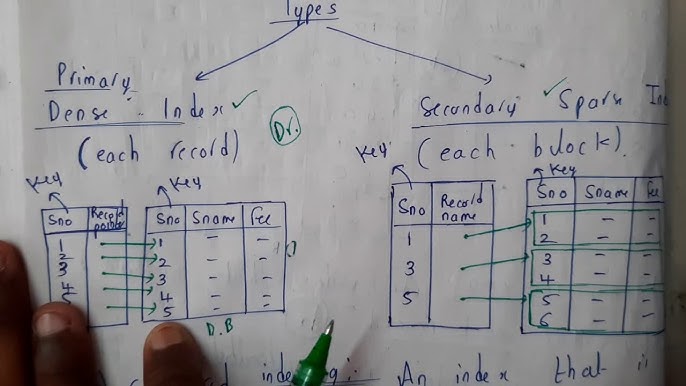 Types
Primary
Dense Index ✓
(each record)
Dr.
Secondary ✓ Spars In
(each block)
Key
Key
Sno Record pointer
1
2
3
4
5
Sno Sname Fee
1 – –
2 – –
3 – –
4 – –
5 – –
D.B
Key
Key
Sno Record name
1
3
5
Sno Sname Fee
1 – –
2 – –
3 – –
4 – –
5 – –
6 – –
indexing: An index that is